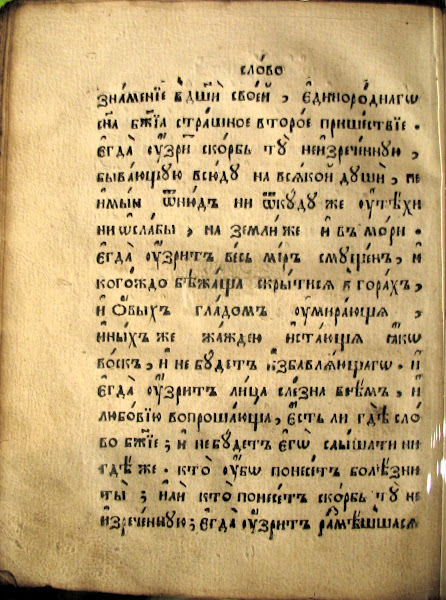 сло́во
зна́менїе в̾дш҃и свое́й , є҆диноро́днагѡ
сн҃а бж҃їѧ стра́шное второ́е прише́ствїе .
є҆гда̀ ᲂу҆́зри ско́рбь тꙋ̀ неизрече́нную ,
быва́ющую всю́дꙋ на всѧ́кой дꙋшѝ , не
и҆мы́и ѿню́дъ ни ѿкꙋ́дꙋ же ᲂу҆тѣ́хи
ни ѡ҆сла́бы , на землѝ же и҆ въ мо́ри .
є҆гда̀ ᲂу҆́зритъ ве́сь мі́ръ смꙋще́нъ , и҆
кого́ждо бѣжа́ща скры́тисѧ в̾ гора́хъ ,
и҆ ѻ҆́выхъ гла́домъ ᲂу҆мира́юща ,
и҆ны́хъ же жа́ждею и҆ста́юща ꙗ҆́кѡ
во́скъ , и҆ не бꙋ́детъ и҆збавлѧ́ющагѡ . и҆
є҆гда̀ ᲂу҆́зритъ ли́ца сле́зна всѣ́мъ , и҆
любо́вїю вопроша́юща , є҆́сть ли гдѣ̀ сло́
во бж҃їе ; и҆ не бꙋ́детъ є҆гѡ̀ слы́шати ни
гдѣ́ же . кто̀ ᲂу҆́бѡ понесе́тъ болѣ́зни
ты̀ ; и҆лѝ кто̀ понесе́тъ ско́рбь тꙋ̀ не
и҆зрече́ннꙋю ; є҆гда̀ ᲂу҆́зритъ